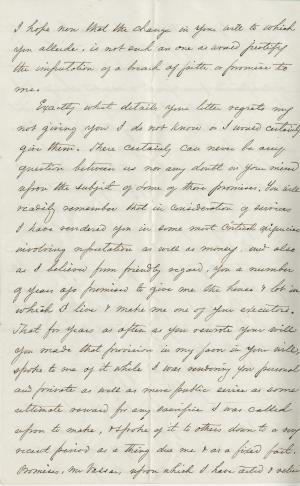 I hope now that the change in your will to which
you allude, is not such an one as would justify
the imputation of a breach of faith or promise to
me.
Exactly what details your letter regrets my
not giving you I do not know or I would certainly
give them. There certainly can never be any
question between us nor any doubt in your mind
upon the subject of some of those promises. You will
readily remember that in consideration of services
I have rendered you in some most critical exigencies
involving reputation as well as money, and also
as I believed from friendly regard, you a number
of years ago promised to give me the house & lot in
which I live & make me one of your executors.
That for years as often as you rewrote your will
you made that provision in my favor in your will,
spoke to me of it while I was rendering you personal
and private as well as more public service as some
ultimate reward for any sacrifice I was called
upon to make, & spoke of it to others down to a very
recent period as a thing due me & as a fixed fact.
Promises, Mr Vassar, upon which I have acted & relied